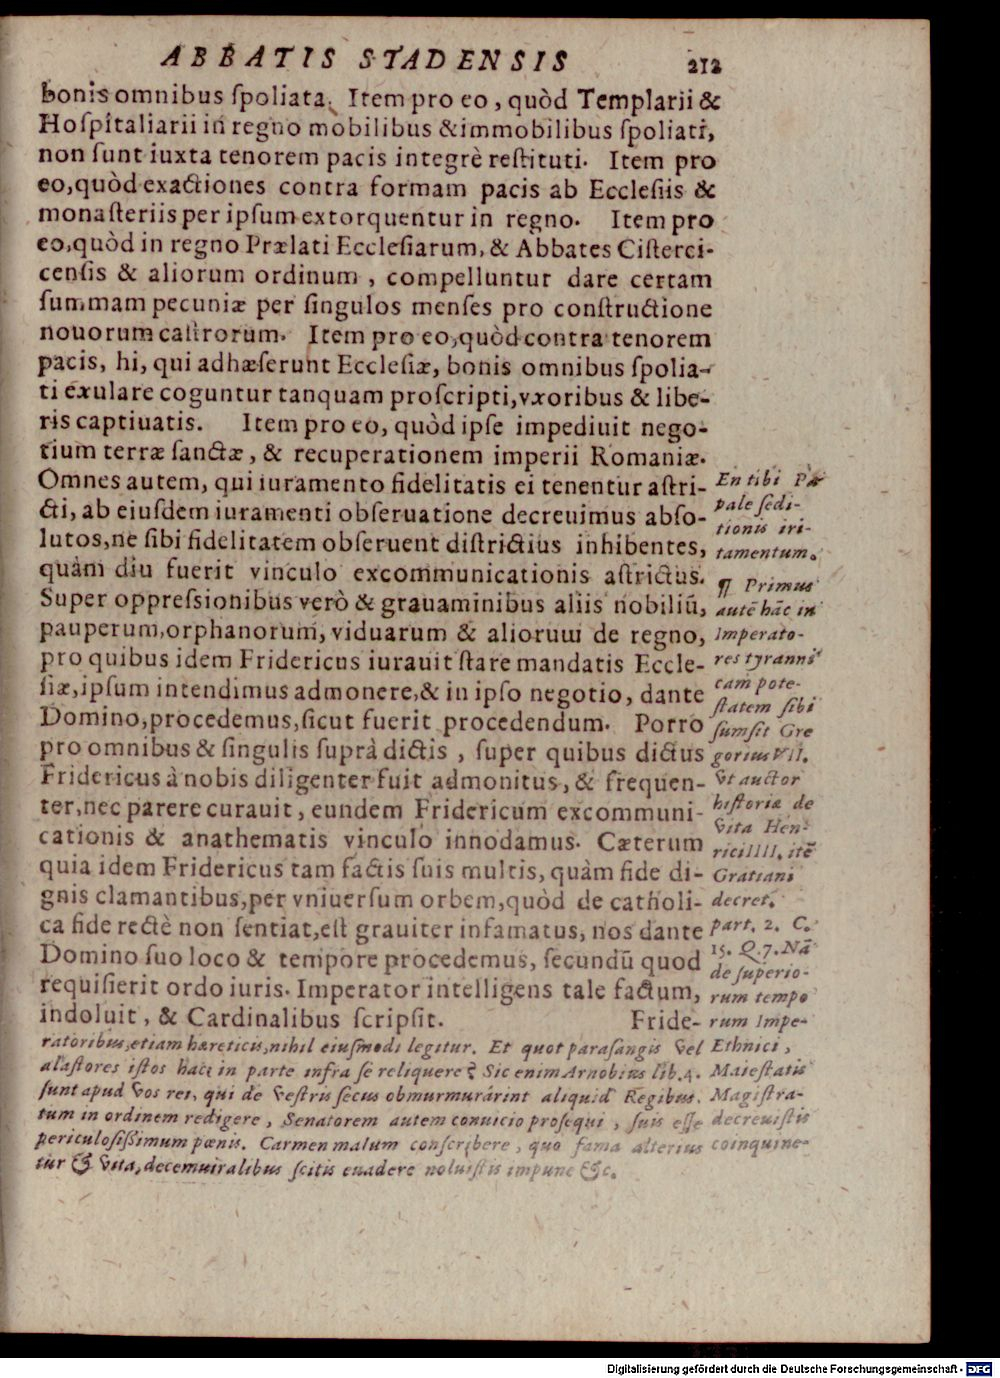 ABBATIS STADENSIS 212
bonis omnibus ſpoliata. Item pro eo, quòd Templarii &
Hoſpitaliarii in regno mobilibus & immobilibus ſpoliati,
non ſunt iuxta tenorem pacis integrè reſtituti. Item pro
eo, quòd exactiones contra formam pacis ab Eccleſiis &
monaſteriis per ipſum extorquentur in regno. Item pro
eo, quòd in regno Prælati Eccleſiarum, & Abbates Ciſterci-
cenſis & aliorum ordinum, compelluntur dare certam
ſummam pecuniæ per ſingulos menſes pro conſtructione
nouorum caſtrorum. Item pro eo, quòd contra tenorem
pacis, hi, qui adhæſerunt Eccleſiæ, bonis omnibus ſpolia-
ti exulare coguntur tanquam proſcripti, vxoribus & libe-
ris captiuatis. Item pro eo, quòd ipſe impediuit nego-
tium terræ ſanctæ, & recuperationem imperii Romaniæ.
Omnes autem, qui iuramento fidelitatis ei tenentur aſtri-
cti, ab eiuſdem iuramenti obſeruatione decreuimus abſo-
lutos, ne ſibi fidelitatem obſeruent diſtrictius inhibentes,
quàm diu fuerit vinculo excommunicationis aſtrictus.
Super oppreſsionibus verò & grauaminibus aliis nobiliū,
pauperum, orphanorum, viduarum & aliorum de regno,
pro quibus idem Fridericus iurauit ſtare mandatis Eccle-
ſiæ, ipſum intendimus admonere, & in ipſo negotio, dante
Domino, procedemus, ſicut fuerit procedendum. Porro
pro omnibus & ſingulis ſuprà dictis, ſuper quibus dictus
Fridericus à nobis diligenter fuit admonitus, & frequen-
ter, nec parere curauit, eundem Fridericum excommuni-
cationis & anathematis vinculo innodamus. Cæterum
quia idem Fridericus tam factis ſuis multis, quàm fide di-
gnis clamantibus, per vniuerſum orbem, quòd de catholi-
ca fide rectè non ſentiat, eſt grauiter infamatus, nos dante
Domino ſuo loco & tempore procedemus, ſecundū quod
requiſierit ordo iuris. Imperator intelligens tale factum,
indoluit, & Cardinalibus ſcripſit. Fride-
En tibi Pa-
pale ſedi-
tionis iri-
tamentum.
¶ Primus
autē hāc in
Imperato-
res tyranni
cam pote-
ſtatem ſibi
ſumſit Gre
gorius VII.
vt auctor
hiſtoriæ de
vita Hen-
rici IIII. itē
Gratiani
decret.
part. 2. C.
15. Q. 7. Nā
de ſuperio-
rum tempo
rum Impe-
ratoribus, etiam hæreticis, nihil eiuſmodi legitur. Et quot paraſangis vel Ethnici,
alaſtores iſtos hac in parte infra ſe reliquere? Sic enim Arnobius lib. 4. Maieſtatis
ſunt apud vos rei, qui de veſtris ſecus obmurmurárint aliquid Regibus. Magiſtra-
tum in ordinem redigere, Senatorem autem conuicio proſequi, ſuis eſſe decreuiſtis
periculoſiſſimum pœnis. Carmen malum conſcribere, quo fama alterius coinquine-
tur & vita, decemuiralibus ſcitis euadere noluiſtis impune &c.
Digitalisierung gefördert durch die Deutsche Forschungsgemeinschaft - DFG